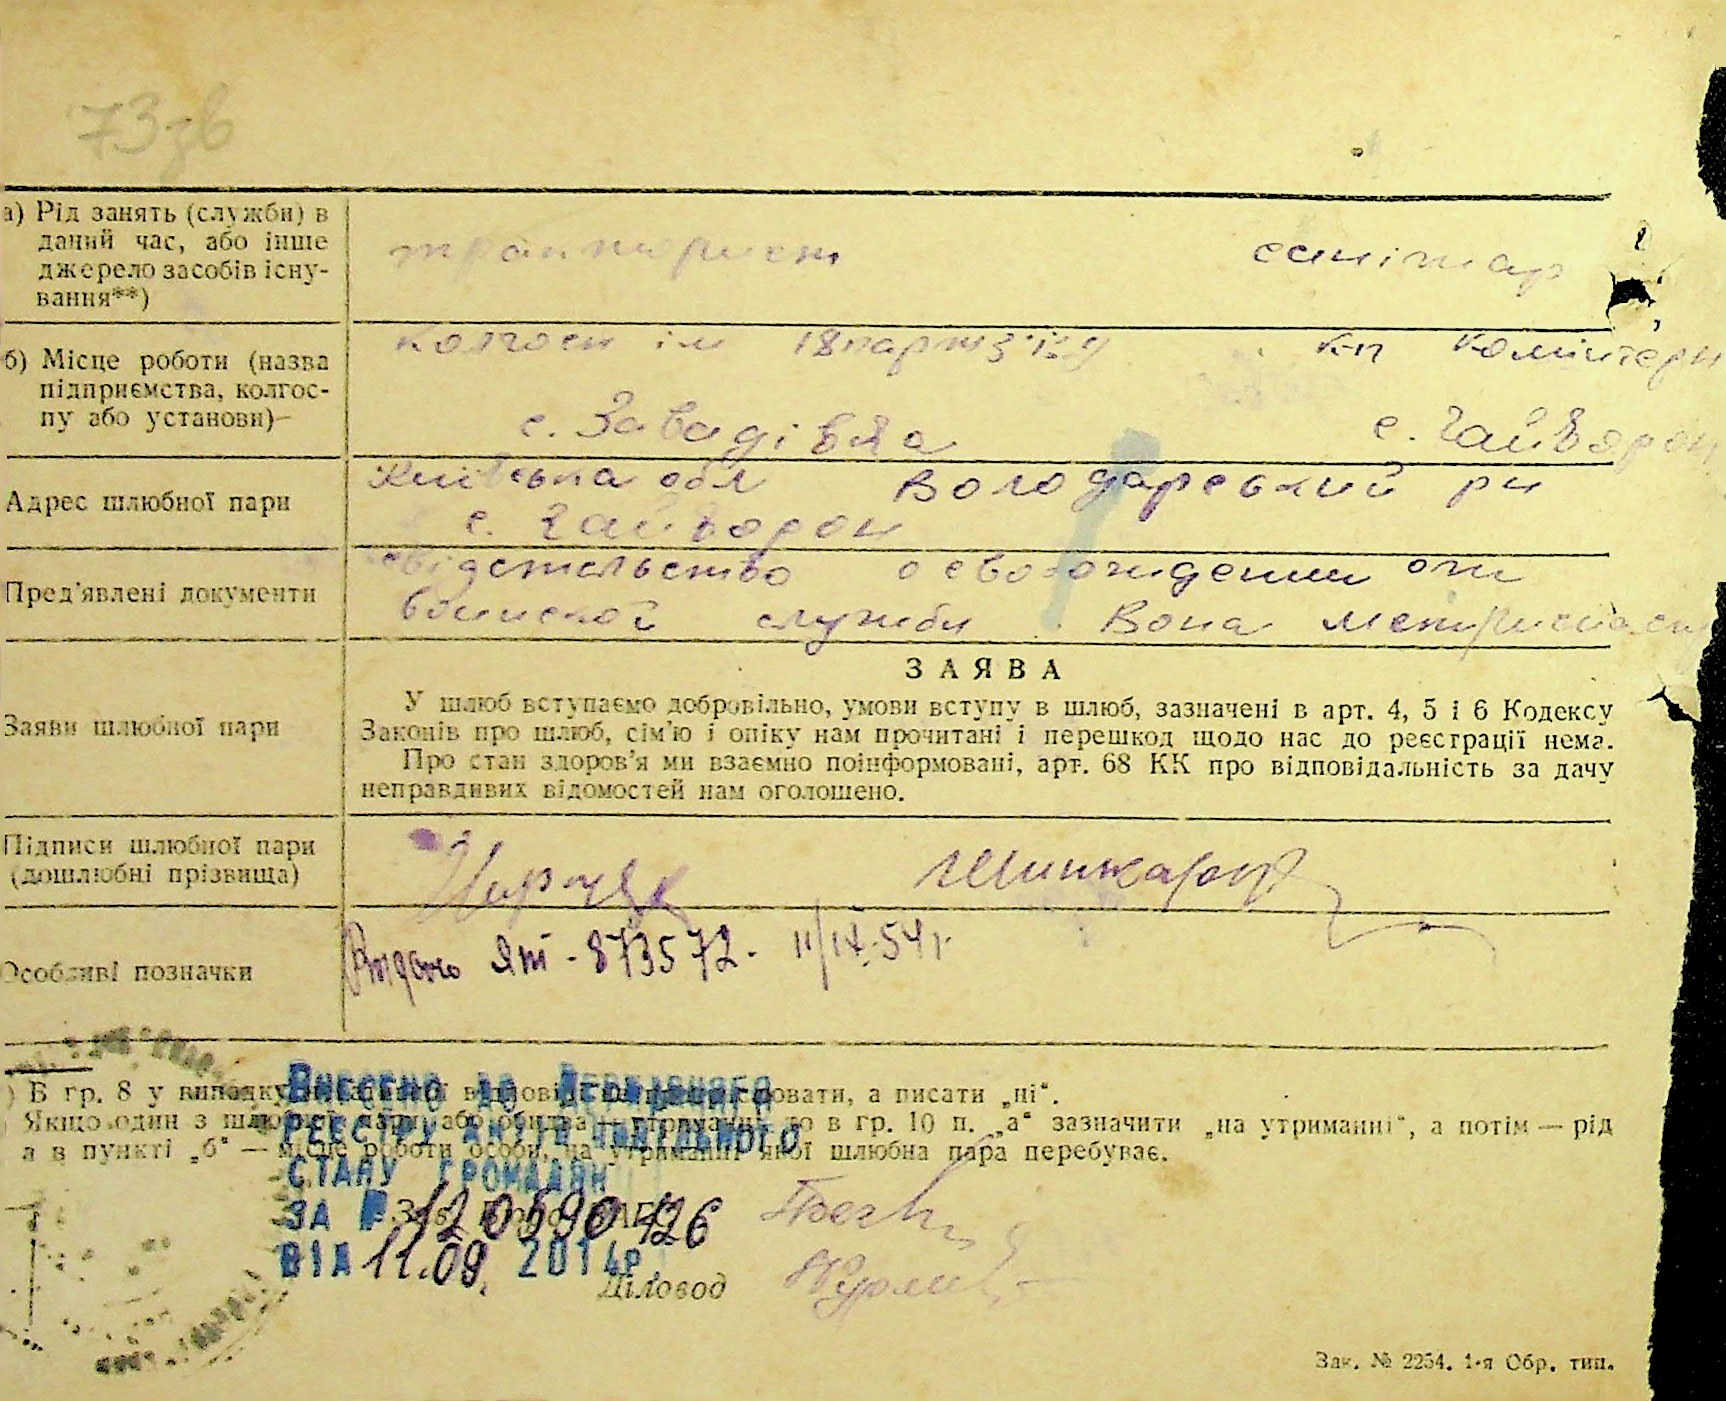 73зв
а) Рід занять (служби) в даний час, або інше джерело засобів існування**)
тракторист санітар
б) Місце роботи (назва підприємства, колгоспу або установи)
колгосп ім 18 партз'їзу кп Комінтерн
с. Завадівка с. Гайворон
Адрес шлюбної пари
Київська обл Володарський рн
с. Гайворон
Пред'явлені документи
свідетельство о освобождении от
воинской служби Вона метрическ
Заяви шлюбної пари
ЗАЯВА
У шлюб вступаємо добровільно, умови вступу в шлюб, зазначені в арт. 4, 5 і 6 Кодексу
Законів про шлюб, сім'ю і опіку нам прочитані і перешкод щодо нас до реєстрації нема.
Про стан здоров'я ми взаємно поінформовані, арт. 68 КК про відповідальність за дачу
неправдивих відомостей нам оголошено.
Підписи шлюбної пари
(дошлюбні прізвища)
Особливі позначки
Видано ЯШ - 873572. 11/IX.54 г.
) В гр. 8 у випадку відповіді а писати „ні“.
Якщо один з шлюбної пари або обидва — утриманці, то в гр. 10 п. „а“ зазначити „на утриманні“, а потім — рід
а в пункті „б“ — місце роботи особи, на утриманні якої шлюбна пара перебуває.
Внесено до Державного
реєстру актів цивільного
стану громадян
за № 12 0590426
від 11.09. 2014р.
Діловод
Зак. № 2254. 1-я Обр. тип.